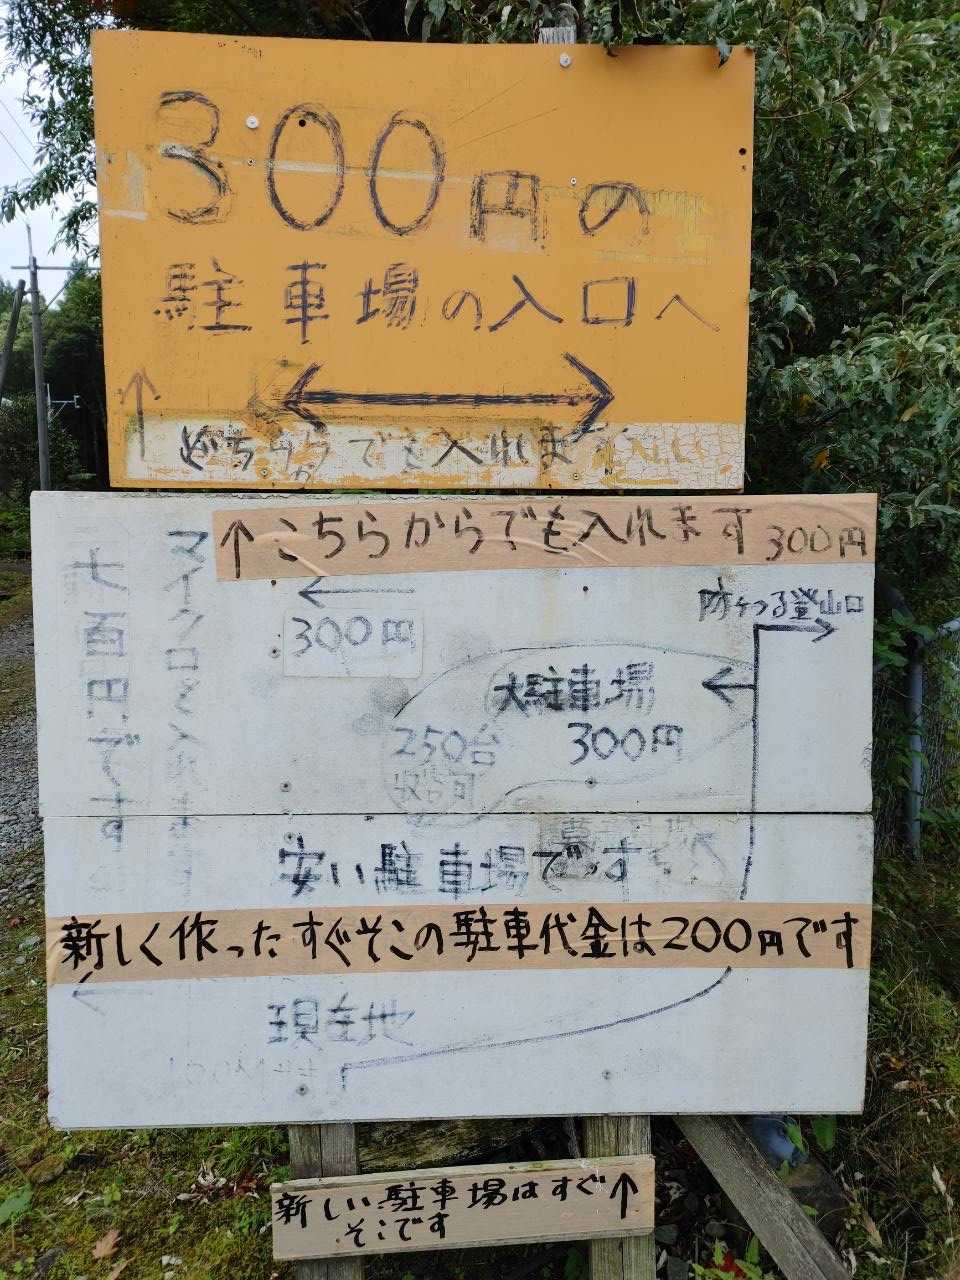 300円の
駐車場の入口へ
↑
どちらからでも入れます
↑こちらからでも入れます 300円
マイクロも入れます
七百円です。
300円
大駐車場
250台
300円
登山口
安い駐車場です
新しく作ったすぐそこの駐車代金は200円です
現在地
新しい駐車場はすぐ↑
そこです